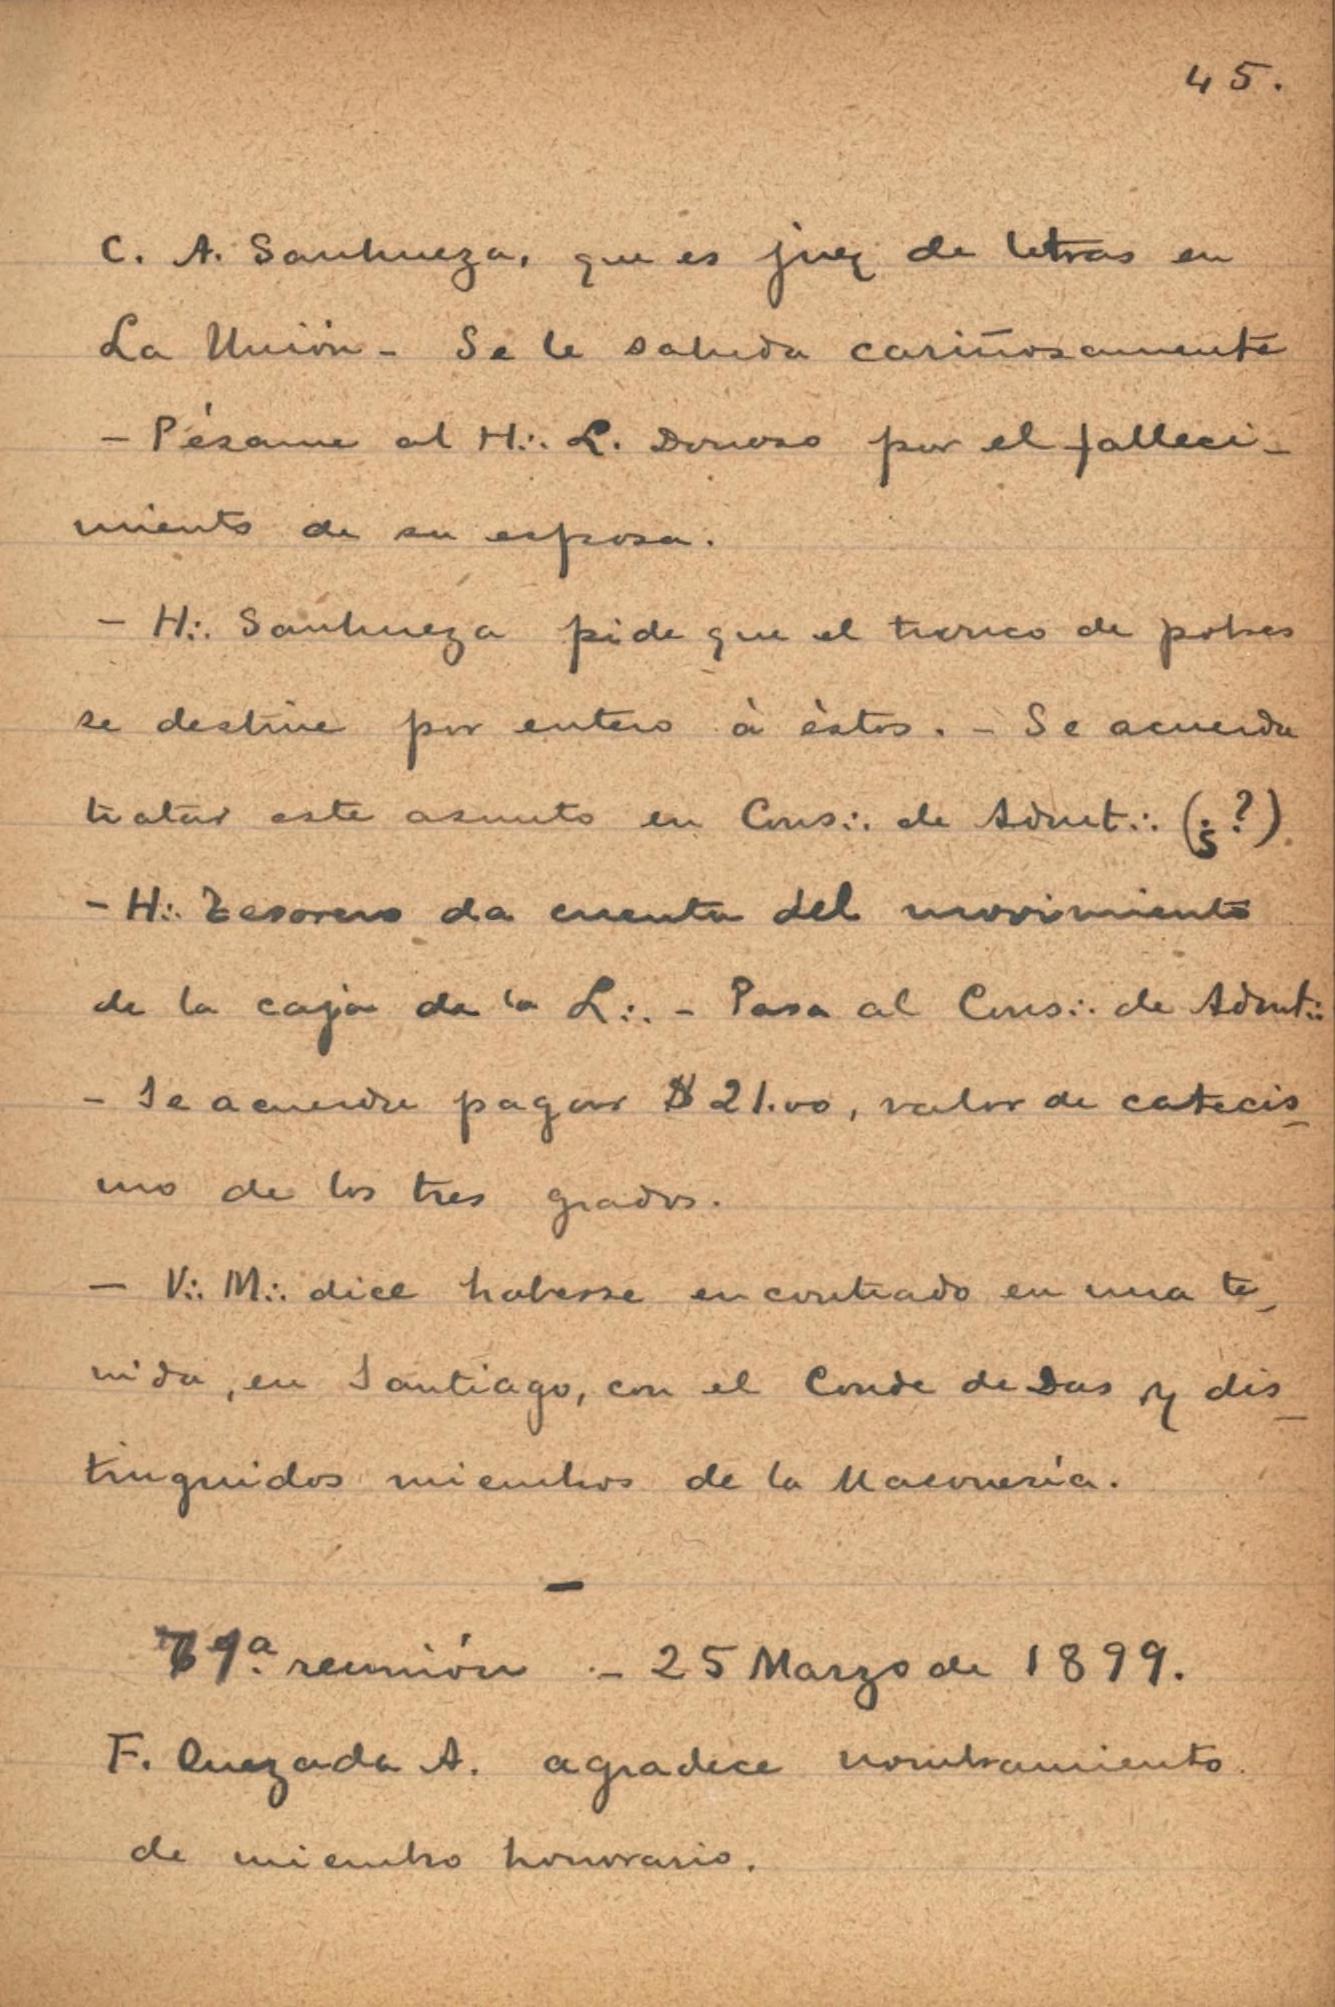 45.
C. A. Sanhueza, que es juez de letras en
La Unión - Se le saluda cariñosamente
- Pésame al H∴ L. Donoso por el falleci-
miento de su esposa.
- H∴ Sanhueza pide que el tronco de pobres
se destine por entero à éstos. - Se acuerda
tratar este asunto en Cons∴ de Admt∴ (¿?)
- H∴ Tesorero da cuenta del movimiento
de la caja de la L∴ - Pasa al Cons∴ de Admt∴
- Se acuerda pagar $ 21.00, valor de catecis-
mo de los tres grados.
- V∴ M∴ dice haberse encontrado en una te-
nida, en Santiago, con el Conde de Das y dis-
tinguidos miembros de la Maconería.
-
reunión - 25 Marzo de 1899.
F. Quezada A. agradece nombramiento
de miembro honorario.